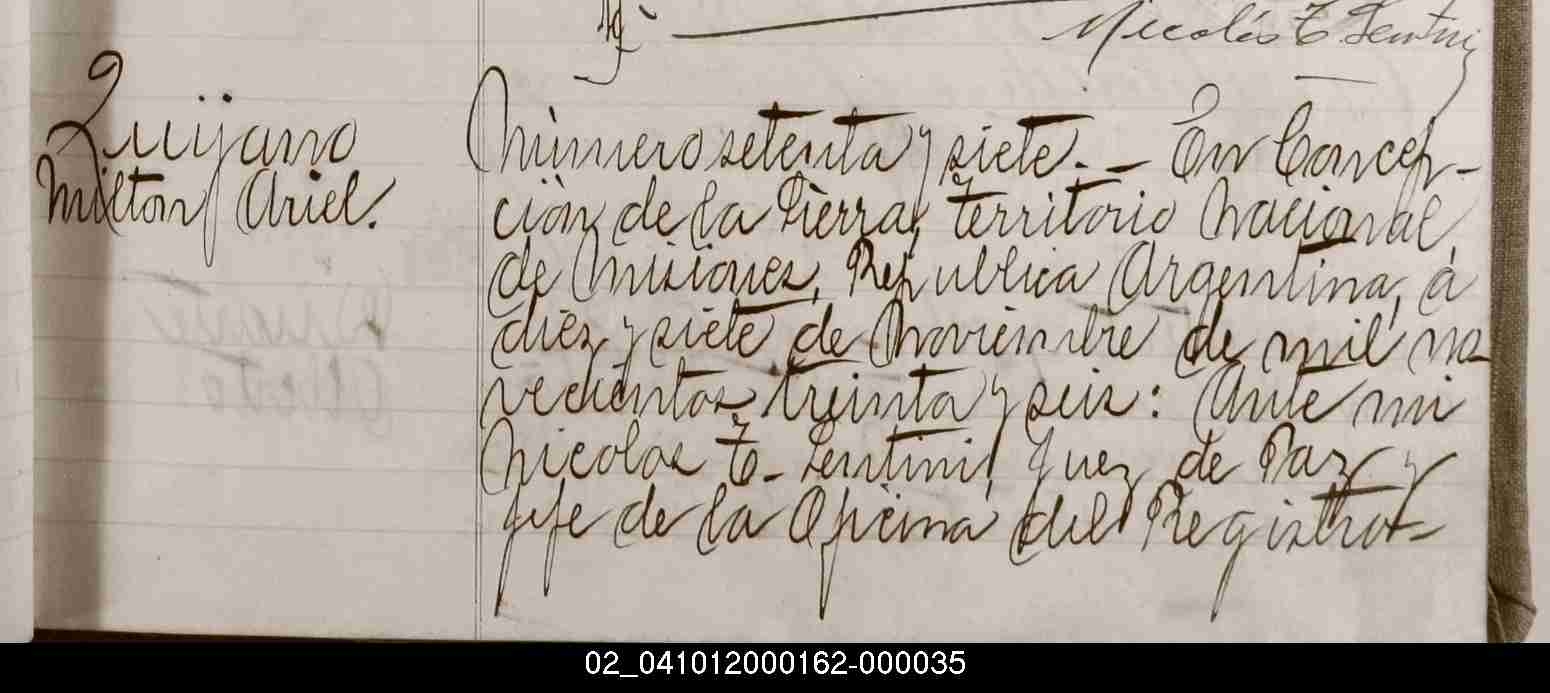 Nicolás T. Sentini
Quijano
Milton Ariel.
Número setenta y siete. – En Concep-
ción de la Sierra, Territorio Nacional
de Misiones, Republica Argentina, á
diez y siete de Noviembre de mil no-
vecientos treinta y seis: Ante mi
Nicolas T. Sentini, Juez de Paz y
Jefe de la Oficina del Registro-
02_041012000162-000035